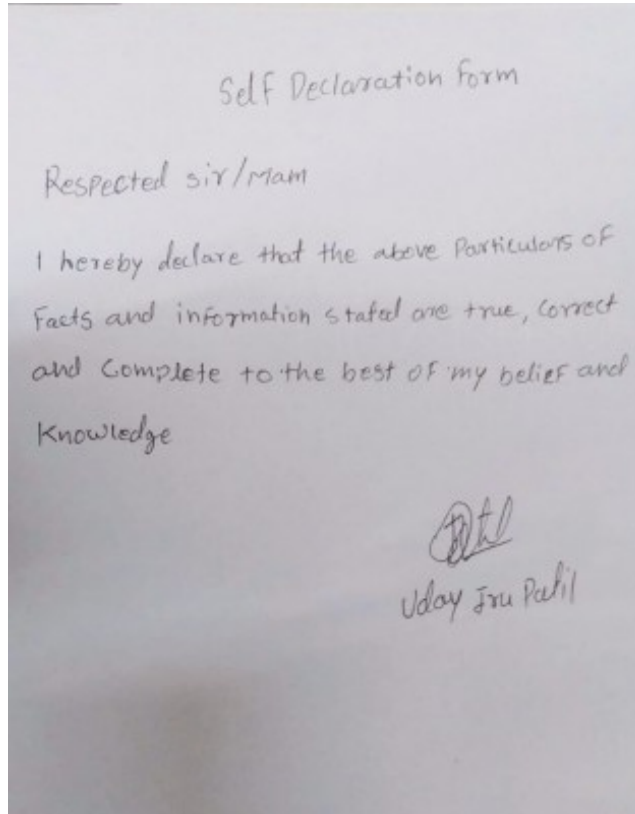 Self Declaration Form
Respected sir/Mam
I hereby declare that the above Particulars of
Facts and information stated are true, Correct
and Complete to the best of my belief and
Knowledge
Uday Iru Patil